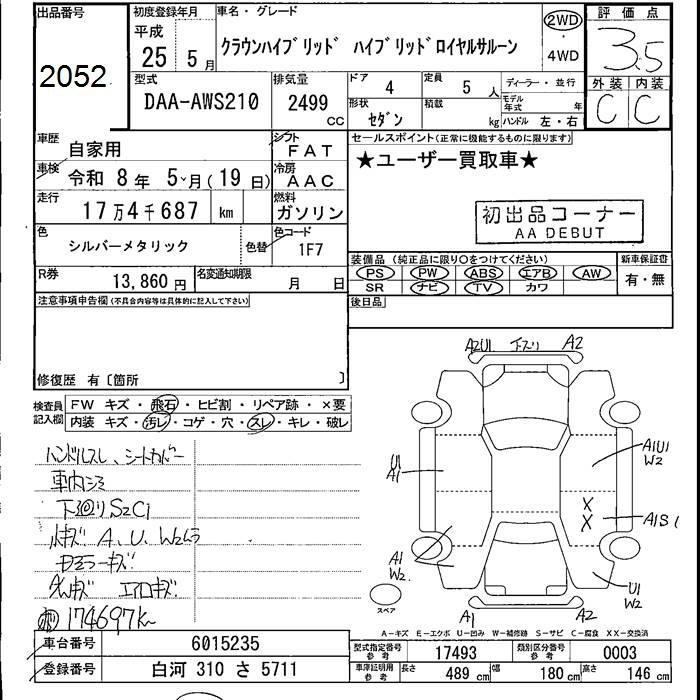 出品番号
2052
初度登録年月
平成
25 5月
車名・グレード
クラウンハイブリッド ハイブリッドロイヤルサルーン
2WD
・
4WD
評価点
3.5
外装 内装
C C
型式
DAA-AWS210
排気量
2499
CC
ドア
4
定員
5 人
形状
セダン
積載
kg
ディーラー・並行
モデル年式 年
ハンドル 左・右
車歴
自家用
シフト
FAT
車検
令和 8年 5月(19日)
冷房
AAC
走行
17万4千687 km
燃料
ガソリン
色
シルバーメタリック
色替
色コード
1F7
R券
13,860円
名変通知期限
月 日
セールスポイント(正常に機能するものに限ります)
★ユーザー買取車★
初出品コーナー
AA DEBUT
装備品(純正品に限り○をつけてください)
PS PW ABS エアB AW
SR ナビ TV カワ
新車保証書
有・無
後日品
注意事項申告欄(不具合内容等は具体的に記入して下さい)
修復歴 有〔箇所 〕
検査員記入欄
FW キズ・飛石・ヒビ割・リペア跡・×要
内装 キズ・汚レ・コゲ・穴・スレ・キレ・破レ
ハンドルスレ、シートカバー
車内シミ
下廻りS2C1
A、U、W2
エアロキズ
174697km
A2U1 下スリ A2
U1
A1
A1U1
W2
X
X
A1S1
A1
W2
U1
W2
A1 A2
スペア
A-キズ E-エクボ U-凹み W-補修跡 S-サビ C-腐食 XX-交換済
車台番号
6015235
登録番号
白河 310 さ 5711
型式指定番号
参考
17493
類別区分番号
参考
0003
車庫証明用
参考
長さ
489 cm
幅
180 cm
高さ
146 cm